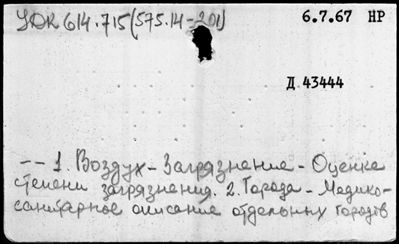 УДК 614.715(575.14-201)
6.7.67 НР
Д 43444
-- 1. Воздух - Загрязнение - Оценка
степени загрязнения. 2. Города - Медико-
санитарное описание отдельных городов